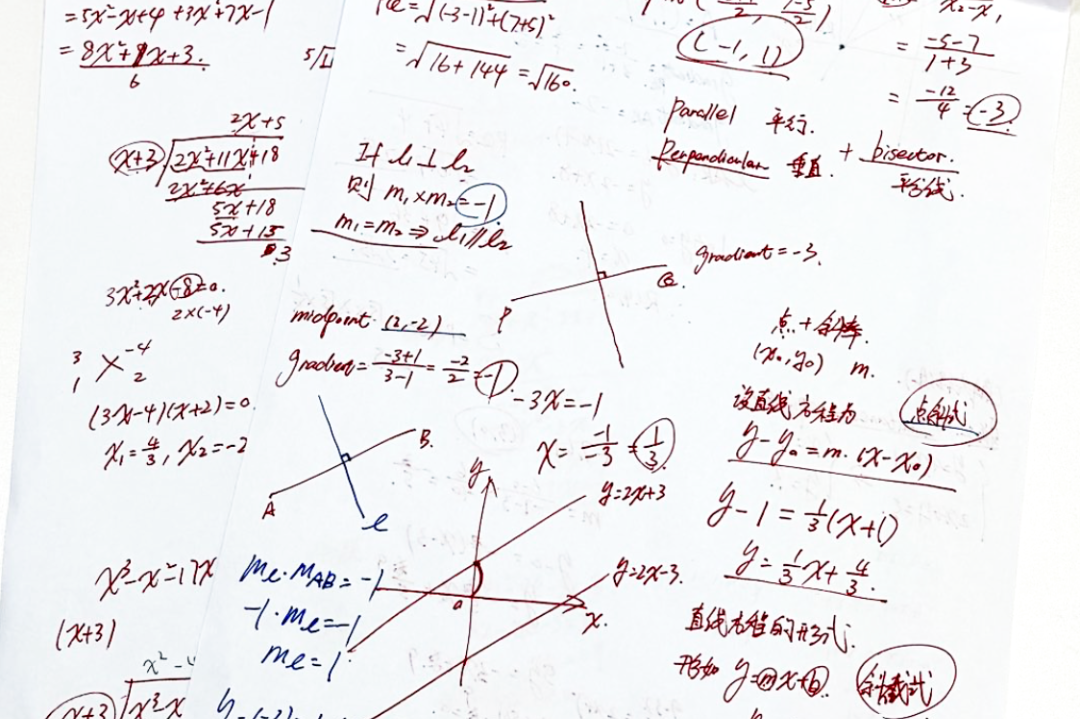 =5x²-x+4+3x²+7x-1
= 8x²+ x+3.
6
2x+5
x+3 2x²+11x+18
2x²+6x
5x+18
5x+15
3
3x²+2x-8=0.
2×(-4)
3 -4
1 2
(3x-4)(x+2)=0
x₁=4/3, x₂=-2
x³-x²-17x
(x+3)
x²-4
x+3 x³-x
=√(-3-1)²+(7+5)²
=√16+144 =√160.
If l₁⊥l₂
则 m₁×m₂=-1
m₁=m₂⇒l₁//l₂
midpoint (2,-2)
gradient=-3+1/3-1=-2/2=-1
A
B.
l
mₗ·mAB=-1
-1·mₗ=-1
mₗ=1
(-1, 1)
x₂-x₁
= -5-7/1+3
= -12/4=-3
parallel 平行.
Perpendicular 垂直. + bisector.
平分线.
P
Q.
gradient=-3.
-3x=-1
x=-1/-3=1/3.
y
y=2x+3
y=2x-3.
o
x.
点+斜率.
(x₀,y₀) m.
设直线方程为 点斜式
y-y₀=m·(x-x₀)
y-1=1/3(x+1)
y=1/3x+4/3.
直线方程的形式.
形如 y=mx+b. 斜截式